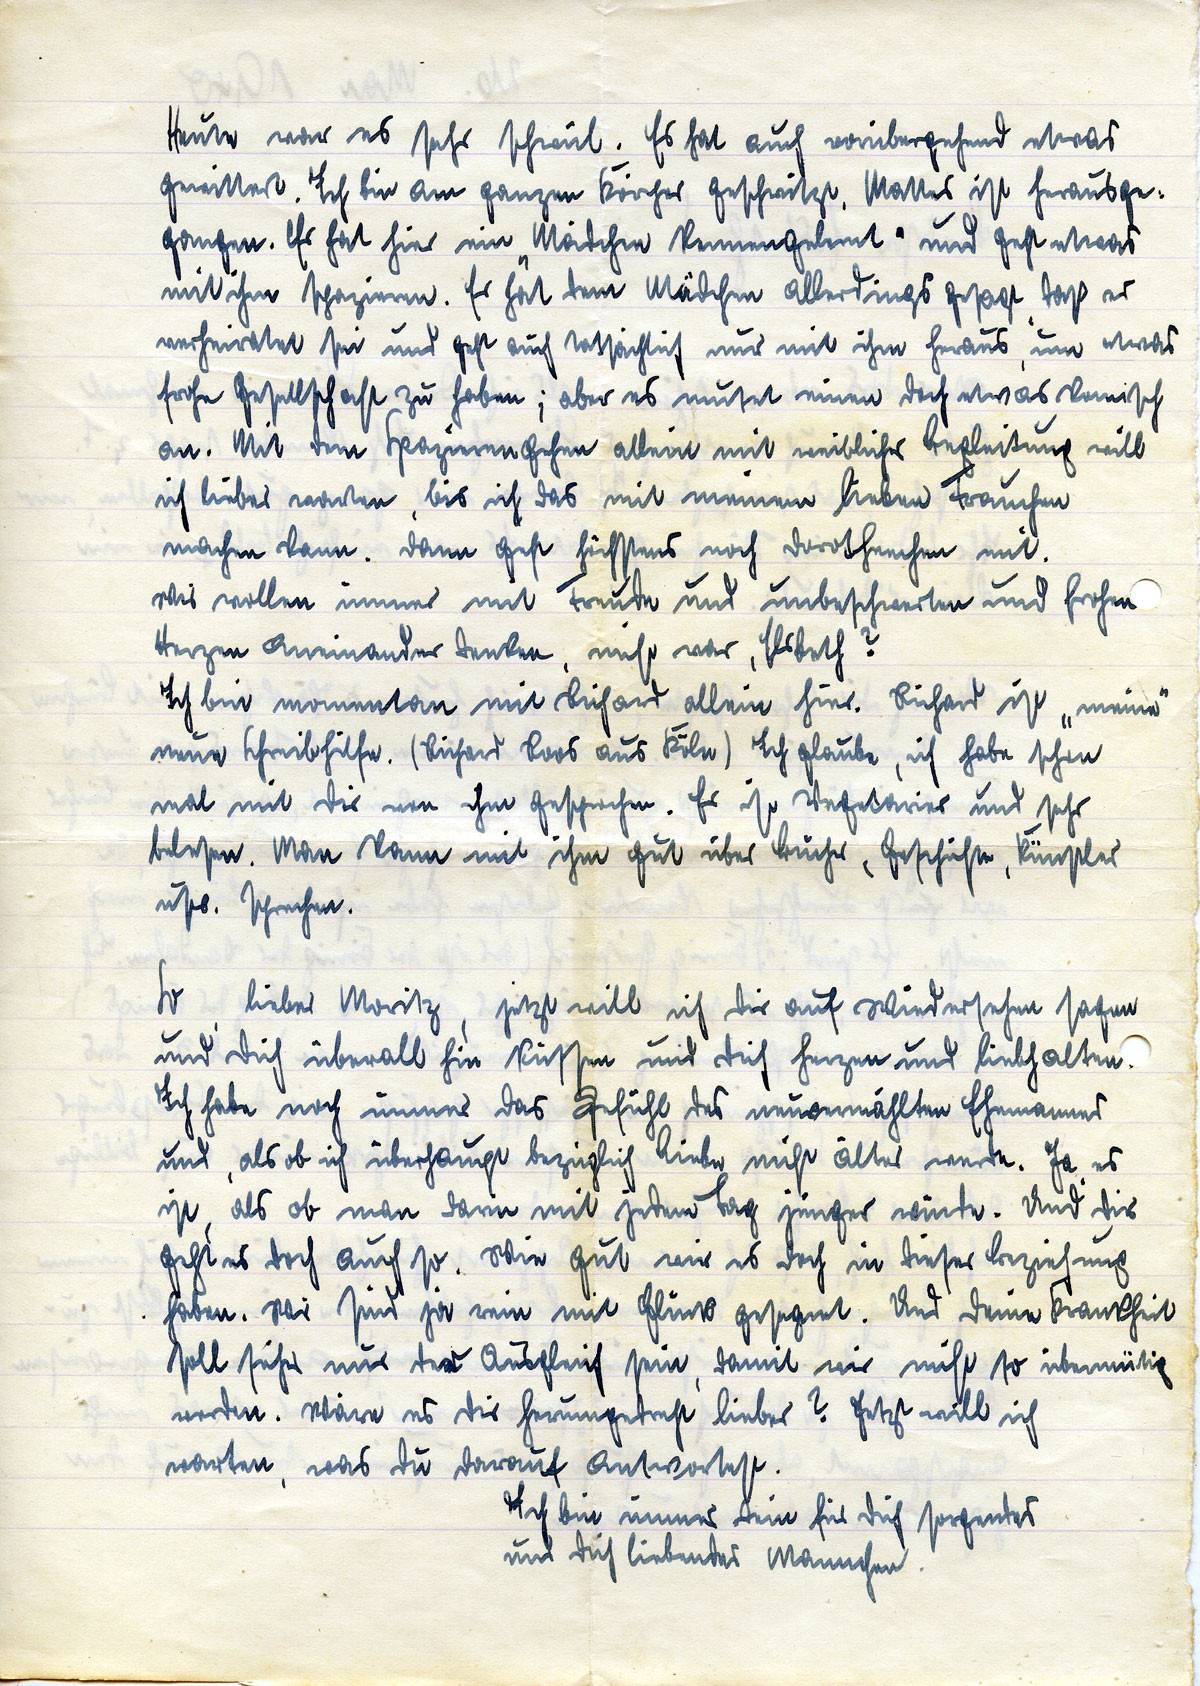 Heute war es sehr schwül. Es hat auch vorübergehend etwas
gewittert. Ich bin am ganzen Körper geschwitzt. Mattes ist herausge-
gangen. Er hat hier ein „Mädchen kennengelernt“ und geht etwas
mit ihm spazieren. Er hat dem Mädchen allerdings gesagt, daß er
verheiratet sei und geht auch tatsächlich nur mit ihm heraus, um etwas
frohe Gesellschaft zu haben; aber es mutet einen doch etwas komisch
an. Mit dem Spazierengehen allein mit weiblicher Begleitung will
ich lieber warten, bis ich das mit meinem lieben Frauchen
machen kann. Dann geht höchstens noch Dorotheechen mit.
Wir wollen immer mit Freude und unbeschwerten und frohen
Herzen aneinander denken, nicht war, Elsbeth?
Ich bin momentan mit Richard allein hier. Richard ist „meine“
neue Schreibhilfe. (Richard Roos aus Köln) Ich glaube, ich habe schon
mal mit Dir von ihm gesprochen. Er ist Vegetarier und sehr
belesen. Man kann mit ihm gut über Bücher, Geschichte, Künstler
usw. sprechen.
So, lieber Moritz, jetzt will ich Dir auf Wiedersehen sagen
und Dich überall hin küssen und Dich herzen und liebhalten.
Ich habe noch immer das Gefühl des neuvermählten Ehemannes
und, als ob ich überhaupt bezüglich Liebe nicht älter werde. Ja, es
ist, als ob man darin mit jedem Tag jünger würde. Und Dir
geht es doch auch so. Wie gut wir es doch in dieser Beziehung
haben. Wir sind ja rein mit Glück gesegnet. Und Deine Krankheit
soll sicher nur der Ausgleich sein, damit wir nicht so übermütig
werden. Wäre es Dir herumgedreht lieber? Jetzt will ich
warten, was Du darauf antwortest.
Ich bin immer Dein für Dich sorgendes
und Dich liebendes Mannchen.